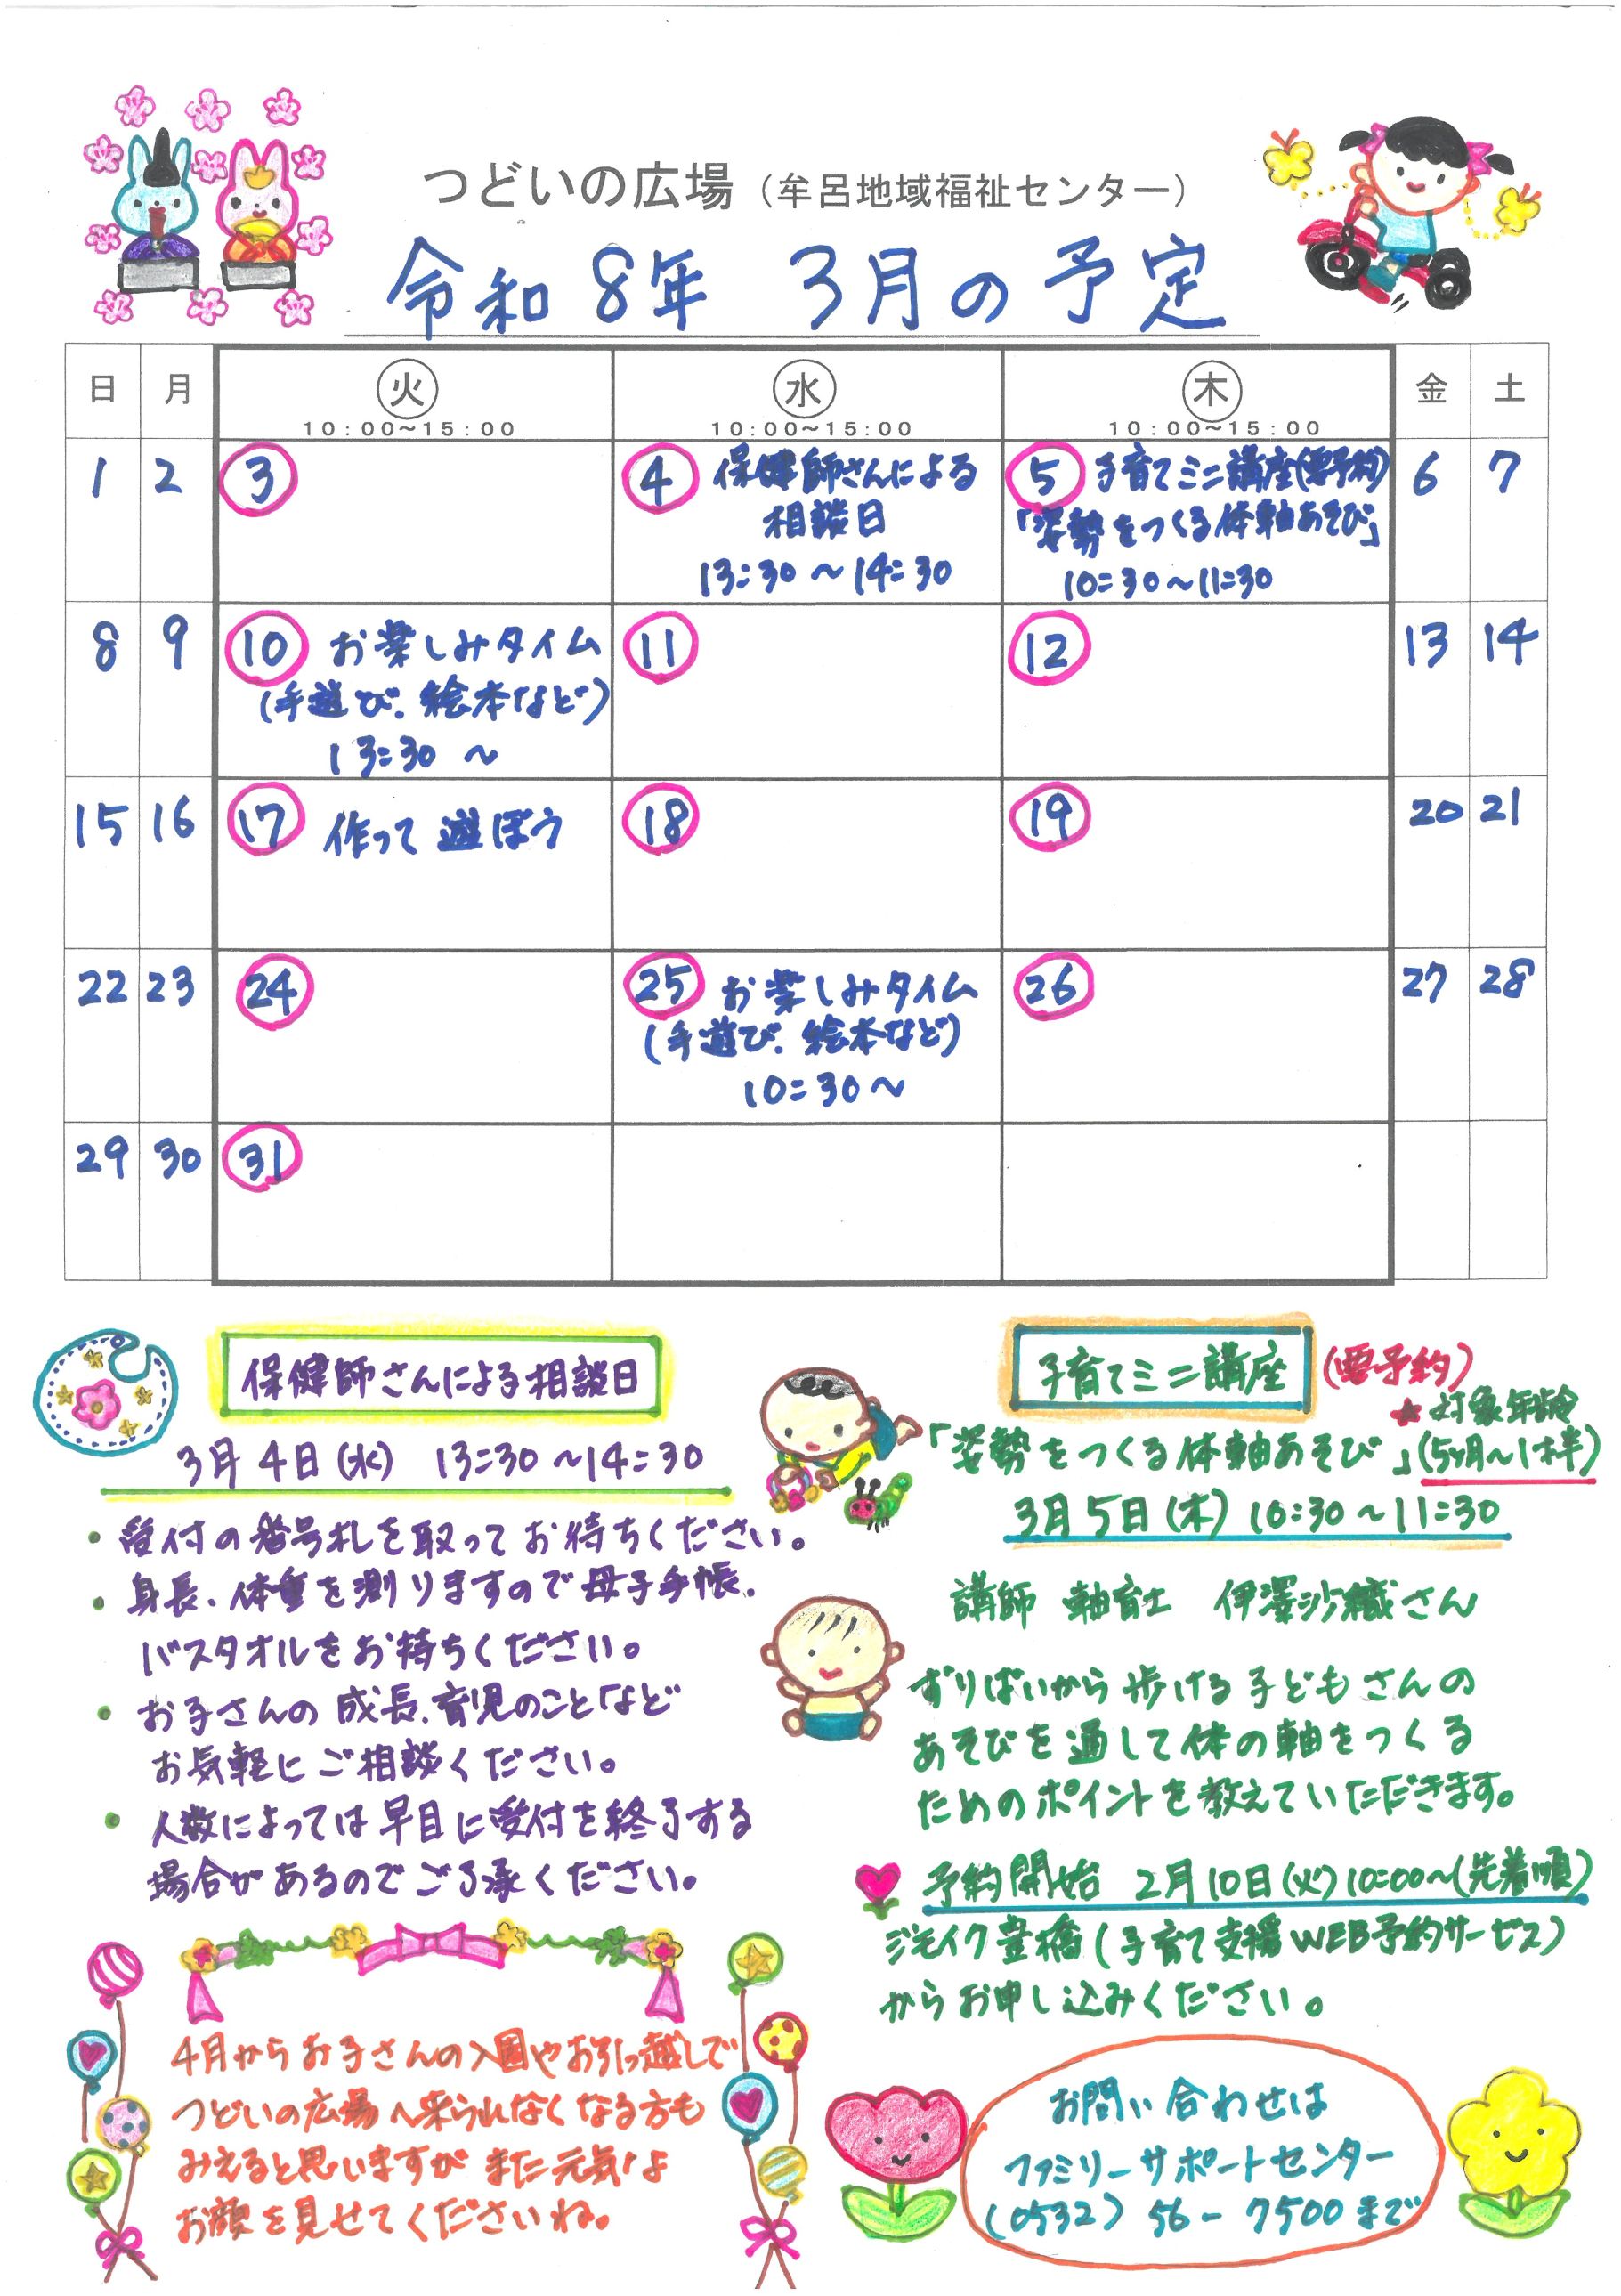 つどいの広場（牟呂地域福祉センター）
令和8年 3月の予定
日 月 火 水 木 金 土
10:00~15:00 10:00~15:00 10:00~15:00
1 2 3 4 保健師さんによる 5 子育てミニ講座(要予約) 6 7
相談日 「姿勢をつくる体軸あそび」
13:30～14:30 10:30～11:30
8 9 10 お楽しみタイム 11 12 13 14
(手遊び、絵本など)
13:30 ～
15 16 17 作って遊ぼう 18 19 20 21
22 23 24 25 お楽しみタイム 26 27 28
(手遊び、絵本など)
10:30～
29 30 31
保健師さんによる相談日
3月4日(水) 13:30～14:30
・受付の番号札を取ってお待ちください。
・身長、体重を測りますので母子手帳、
バスタオルをお持ちください。
・お子さんの成長、育児のことなど
お気軽にご相談ください。
・人数によっては早目に受付を終了する
場合があるのでご了承ください。
4月からお子さんの入園やお引っ越しで
つどいの広場へ来られなくなる方も
みえると思いますがまた元気な
お顔を見せてくださいね。
子育てミニ講座 (要予約)
★対象年齢
「姿勢をつくる体軸あそび」(5ヶ月～1才半)
3月5日(木) 10:30～11:30
講師 軸育士 伊澤沙織さん
ずりばいから歩ける子どもさんの
あそびを通して体の軸をつくる
ためのポイントを教えていただきます。
予約開始 2月10日(火)10:00～(先着順)
ジモイク豊橋(子育て支援WEB予約サービス)
からお申し込みください。
お問い合わせは
ファミリーサポートセンター
(0532) 56-7500まで